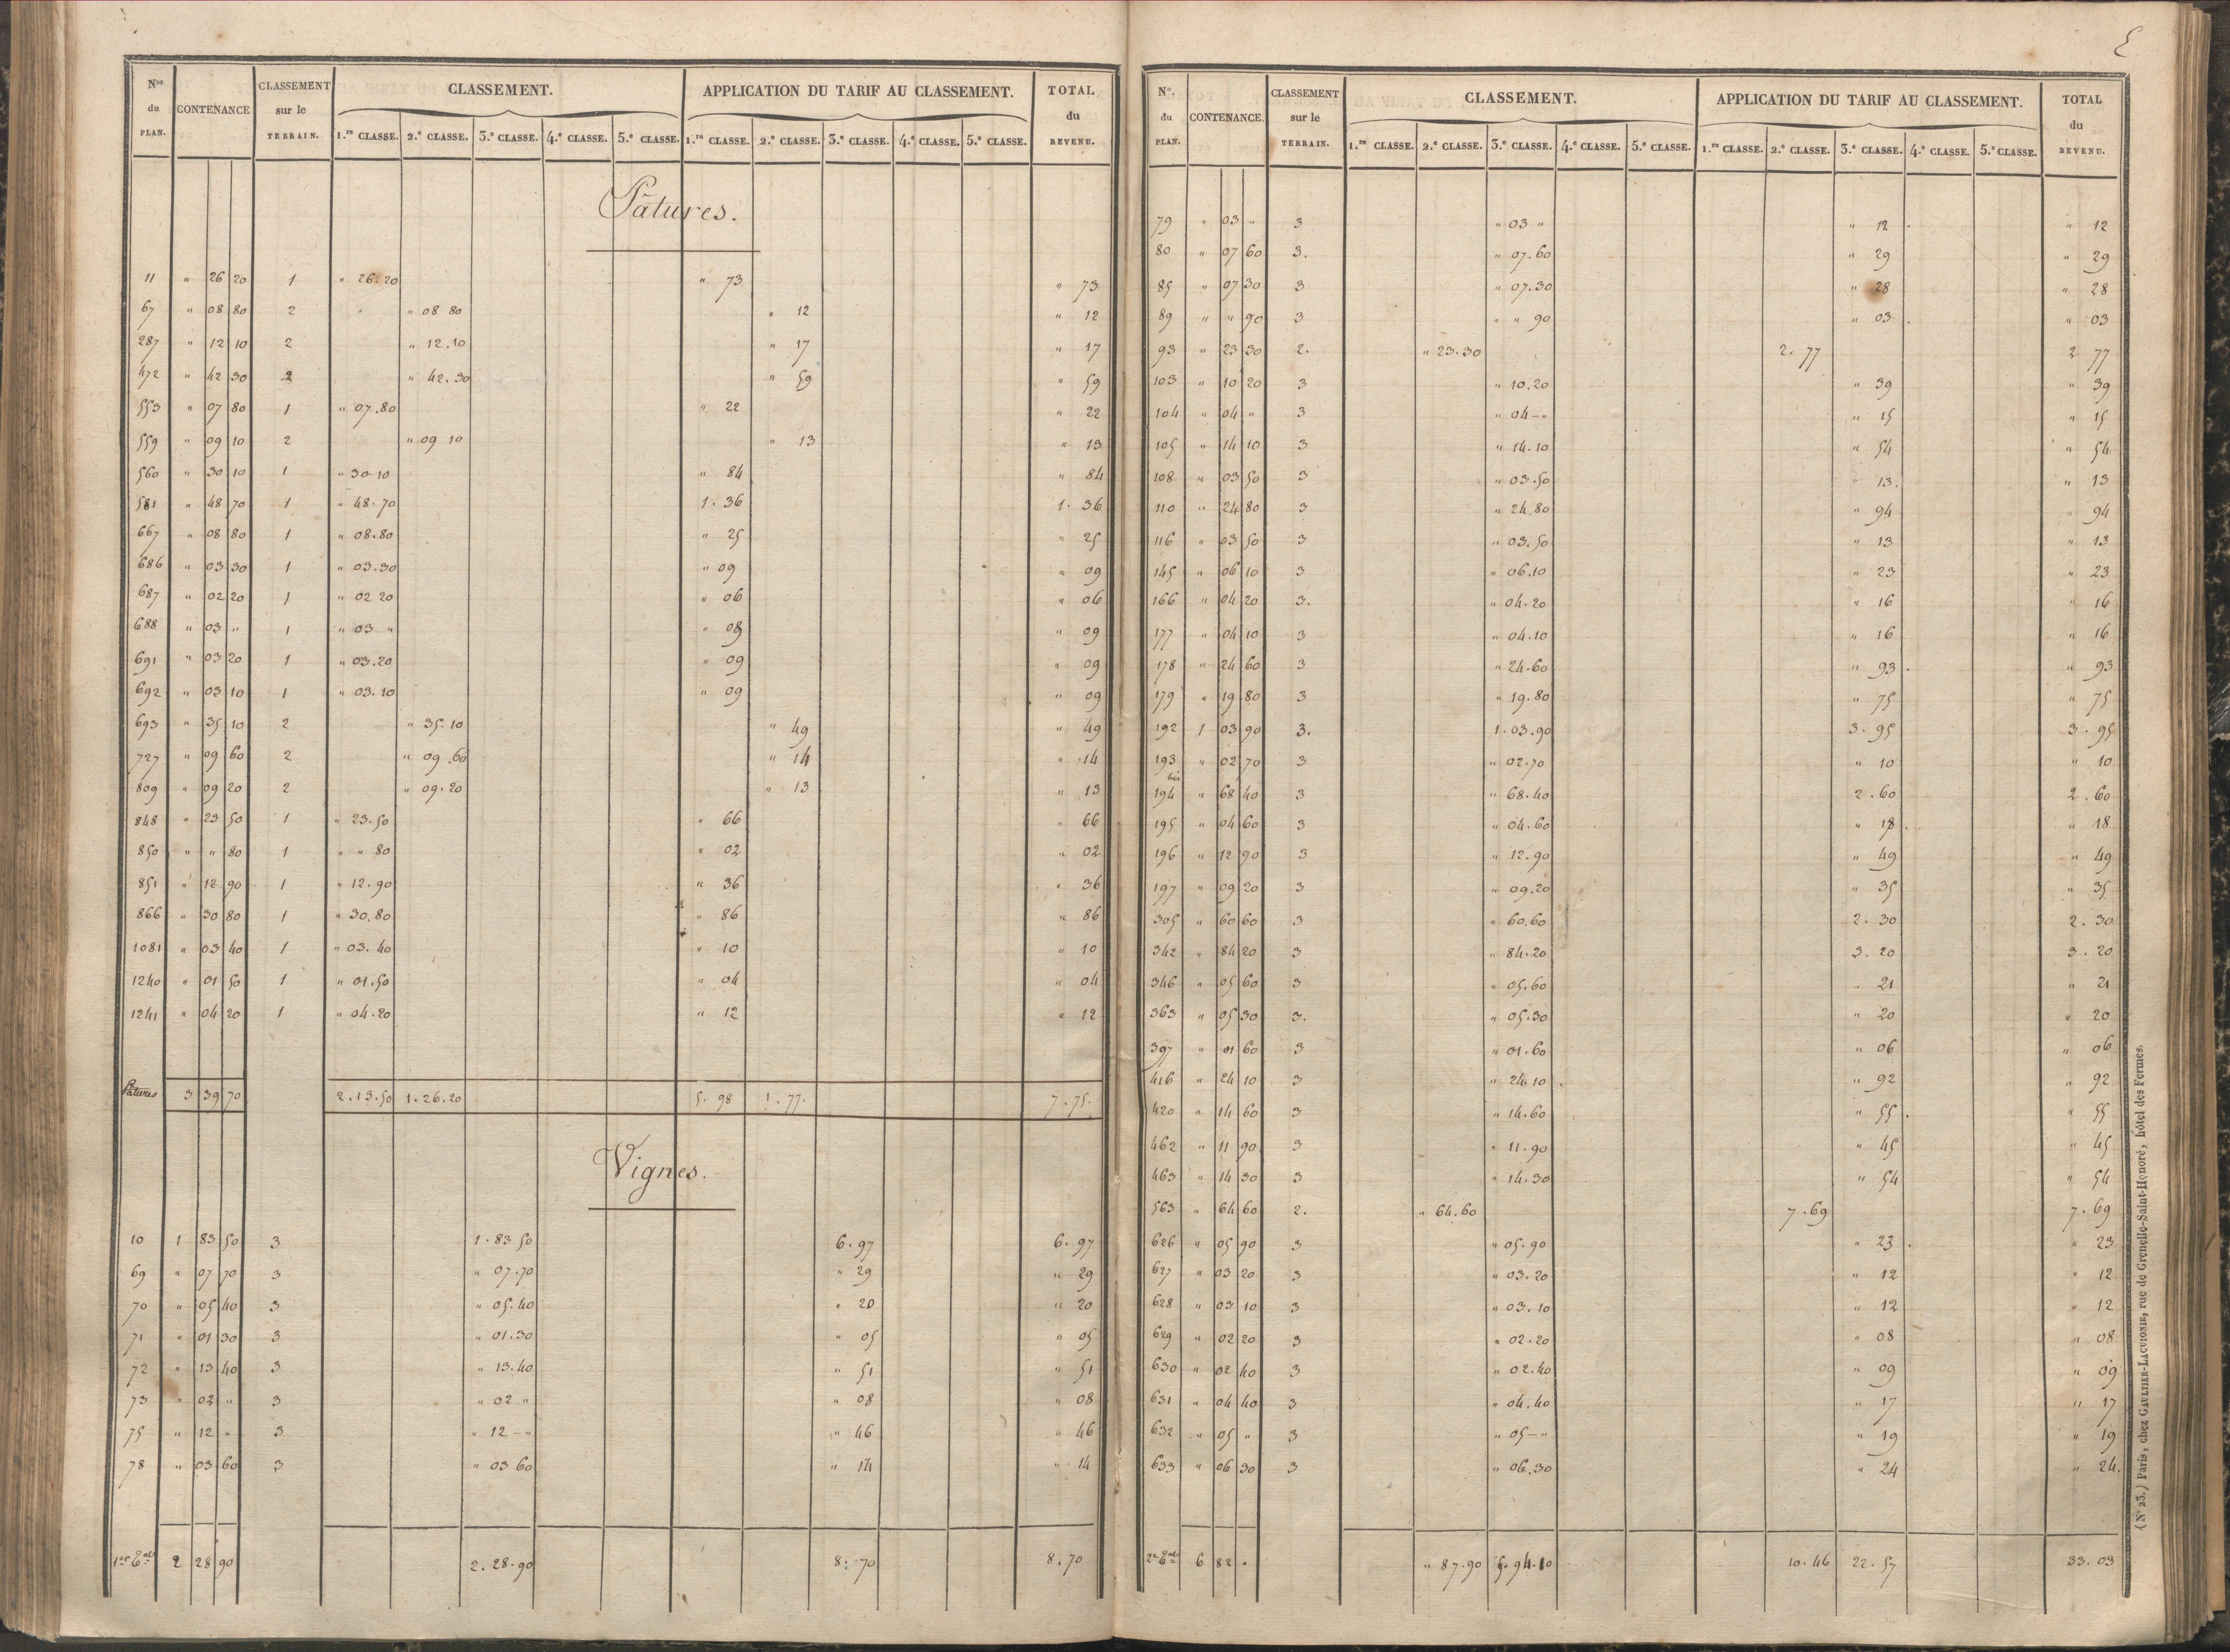 Nos du PLAN. CONTENANCE CLASSEMENT sur le TERRAIN. CLASSEMENT. APPLICATION DU TARIF AU CLASSEMENT. TOTAL du REVENU.
1.re CLASSE. 2.e CLASSE. 3.e CLASSE. 4.e CLASSE. 5.e CLASSE. 1.re CLASSE. 2.e CLASSE. 3.e CLASSE. 4.e CLASSE. 5.e CLASSE.
Pâtures.
11 " 26 20 1 " 26.20 " 73 " 73
67 " 08 80 2 " 08 80 " 12 " 12
287 " 12 10 2 " 12.10 " 17 " 17
472 " 42 30 2 " 42.30 " 59 " 59
553 " 07 80 1 " 07.80 " 22 " 22
559 " 09 10 2 " 09 10 " 13 " 13
560 " 30 10 1 " 30 10 " 84 " 84
581 " 48 70 1 " 48.70 1.36 1.36
667 " 08 80 1 " 08.80 " 25 " 25
686 " 03 30 1 " 03.30 " 09 " 09
687 " 02 20 1 " 02 20 " 06 " 06
688 " 03 " 1 " 03 " " 09 " 09
691 " 03 20 1 " 03.20 " 09 " 09
692 " 03 10 1 " 03.10 " 09 " 09
693 " 35 10 2 " 35.10 " 49 " 49
727 " 09 60 2 " 09.60 " 14 " 14
809 " 09 20 2 " 09.20 " 13 " 13
848 " 23 50 1 " 23.50 " 66 " 66
850 " " 80 1 " " 80 " 02 " 02
851 " 12 90 1 " 12.90 " 36 " 36
866 " 30 80 1 " 30.80 " 86 " 86
1081 " 03 40 1 " 03.40 " 10 " 10
1240 " 01 50 1 " 01.50 " 04 " 04
1241 " 04 20 1 " 04.20 " 12 " 12
Pâtures 3 39 70 2.13.50 1.26.20 5.98 1.77. 7.75.
Vignes.
10 1 83 50 3 1.83 50 6.97 6.97
69 " 07 70 3 " 07.70 " 29 " 29
70 " 05 40 3 " 05.40 " 20 " 20
71 " 01 30 3 " 01.30 " 05 " 05
72 " 13 40 3 " 13.40 " 51 " 51
73 " 02 " 3 " 02 " " 08 " 08
75 " 12 " 3 " 12 - " " 46 " 46
78 " 03 60 3 " 03 60 " 14 " 14
2 28 90 2.28.90 8.70 8.70
N.o du PLAN. CONTENANCE. CLASSEMENT sur le TERRAIN. CLASSEMENT. APPLICATION DU TARIF AU CLASSEMENT. TOTAL du REVENU.
1.re CLASSE. 2.e CLASSE. 3.e CLASSE. 4.e CLASSE. 5.e CLASSE. 1.re CLASSE. 2.e CLASSE. 3.e CLASSE. 4.e CLASSE. 5.e CLASSE.
79 " 03 " 3 " 03 " " 12 " 12
80 " 07 60 3. " 07.60 " 29 " 29
85 " 07 30 3 " 07.30 " 28 " 28
89 " " 90 3 " " 90 " 03 " 03
93 " 23 30 2. " 23.30 2.77 2 77
103 " 10 20 3 " 10.20 " 39 " 39
104 " 04 " 3 " 04 - " " 15 " 15
105 " 14 10 3 " 14.10 " 54 " 54
108 " 03 50 3 " 03.50 " 13. " 13
110 " 24 80 3 " 24.80 " 94 " 94
116 " 03 50 3 " 03.50 " 13 " 13
145 " 06 10 3 " 06.10 " 23 " 23
166 " 04 20 3. " 04.20 " 16 " 16
177 " 04 10 3 " 04.10 " 16 " 16
178 " 24 60 3 " 24.60 " 93 " 93
179 " 19 80 3 " 19.80 " 75 " 75
192 1 03 90 3. 1.03.90 3.95 3.95
193 " 02 70 3 " 02.70 " 10 " 10
bis
194 " 68 40 3 " 68.40 2.60 2.60
195 " 04 60 3 " 04.60 " 18 " 18
196 " 12 90 3 " 12.90 " 49 " 49
197 " 09 20 3 " 09.20 " 35 " 35
305 " 60 60 3 " 60.60 2.30 2.30
342 " 84 20 3 " 84.20 3.20 3.20
346 " 05 60 3 " 05.60 " 21 " 21
363 " 05 30 3. " 05.30 " 20 " 20
397 " 01 60 3 " 01.60 " 06 " 06
416 " 24 10 3 " 24.10 " 92 " 92
420 " 14 60 3 " 14.60 " 55 " 55
462 " 11 90 3 " 11.90 " 45 " 45
463 " 14 30 3 " 14.30 " 54 " 54
563 " 64 60 2. " 64.60 7.69 7.69
626 " 05 90 3 " 05.90 " 23 " 23
627 " 03 20 3 " 03.20 " 12 " 12
628 " 03 10 3 " 03.10 " 12 " 12
629 " 02 20 3 " 02.20 " 08 " 08
630 " 02 40 3 " 02.40 " 09 " 09
631 " 04 40 3 " 04.40 " 17 " 17
632 " 05 " 3 " 05 - " " 19 " 19
633 " 06 30 3 " 06.30 " 24 " 24.
6 82 " " 87.90 5.94.10 10.46 22.57 33.03
(N° 23.) Paris, chez GAULTIER-LAGUIONIE, rue de Grenelle-Saint-Honoré, hôtel des Fermes.